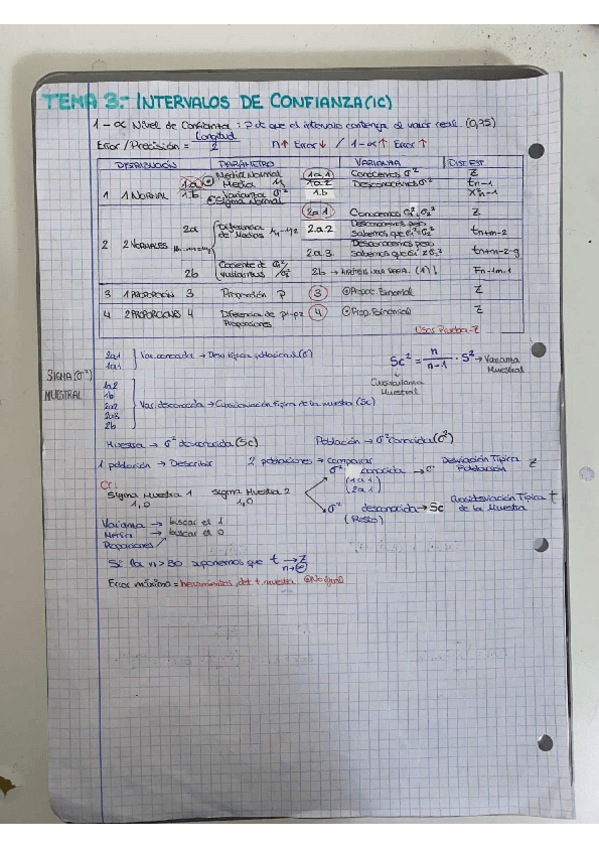 TEMA 3:- INTERVALOS DE CONFIANZA (IC)
1-α Nivel de Confianza: P de que el intervalo contenga el valor real. (0,95)
Error/Precisión = Longitud / 2 n↑ Error↓ / 1-α↑ Error↑
DISTRIBUCIÓN PARÁMETRO VARIANZA DIST. EST.
1 1 NORMAL 1a Media Normal Media μ 1a1 Conocemos σ² Z
1a2 Desconocemos σ² tn-1
1.b Varianza σ² Sigma Normal 1.b X²n-1
2 2 NORMALES 2a Diferencia de Medias μ1-μ2 2a1 Conocemos σ1², σ2² Z
2a2 Desconocemos pero sabemos que σ1²=σ2² tn+m-2
2a3 Desconocemos pero sabemos que σ1²≠σ2² tn+m-2-g
2b Cociente de varianzas σ1²/σ2² 2b → (1)↓ Fn-1m-1
3 1 PROPORCIÓN 3 Proporción P 3 Propor. Binomial Z
4 2 PROPORCIONES 4 Diferencia de Proporciones p1-p2 4 Prop. Binomial Z
Usar Prueba-Z
SIGMA (σ²) MUESTRAL
2a1
1a1
Var. conocida → Desv. típica poblacional (σ)
Sc² = n / n-1 · S² → Varianza Muestral
Cuasivarianza Muestral
1a2
1b
2a2
2a3
2b
Var. desconocida → Cuasidesviación típica de la muestra (Sc)
Muestra → σ² desconocida (Sc) Población → σ² conocida (σ²)
1 población → Describir 2 poblaciones → Comparar
σ² conocida → σ Desviación Típica Población Z
(1a1)
(2a1)
Cr:
Sigma Muestra 1 Sigma Muestra 2
1,0 1,0
σ² desconocida → Sc Cuasidesviación Típica de la Muestra t
(Resto)
Varianza → buscar el 1
Media → buscar el 0
Proporciones
Si la n > 30 suponemos que t → Z
n→∞
Error máximo = herramientas, det t. muestra